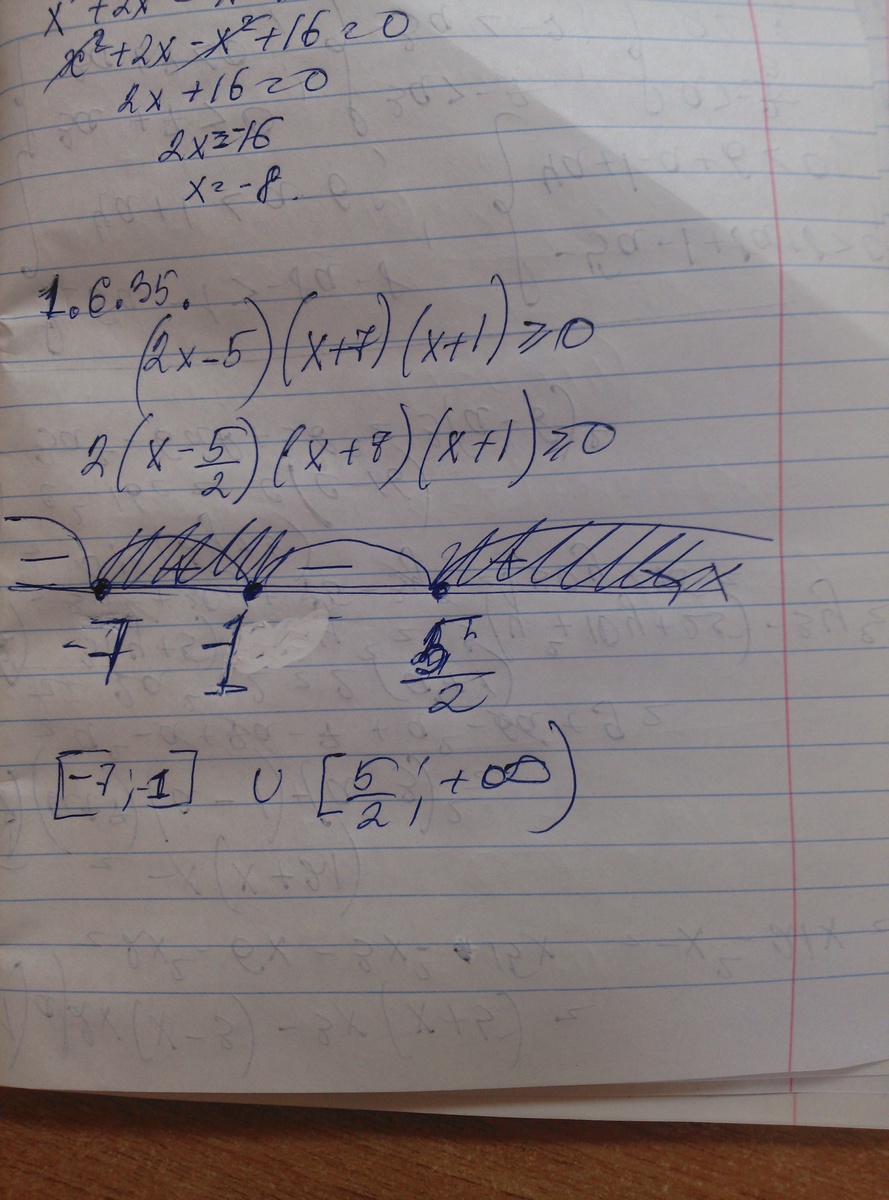 x² + 2x - x² + 16 = 0
2x + 16 = 0
2x = -16
x = -8.
1.6.35.
(2x-5)(x+7)(x+1) ≥ 0
2(x - 5/2)(x+7)(x+1) ≥ 0
- + - + x
-7 -1 5/2
[-7; -1] ∪ [5/2; +∞)